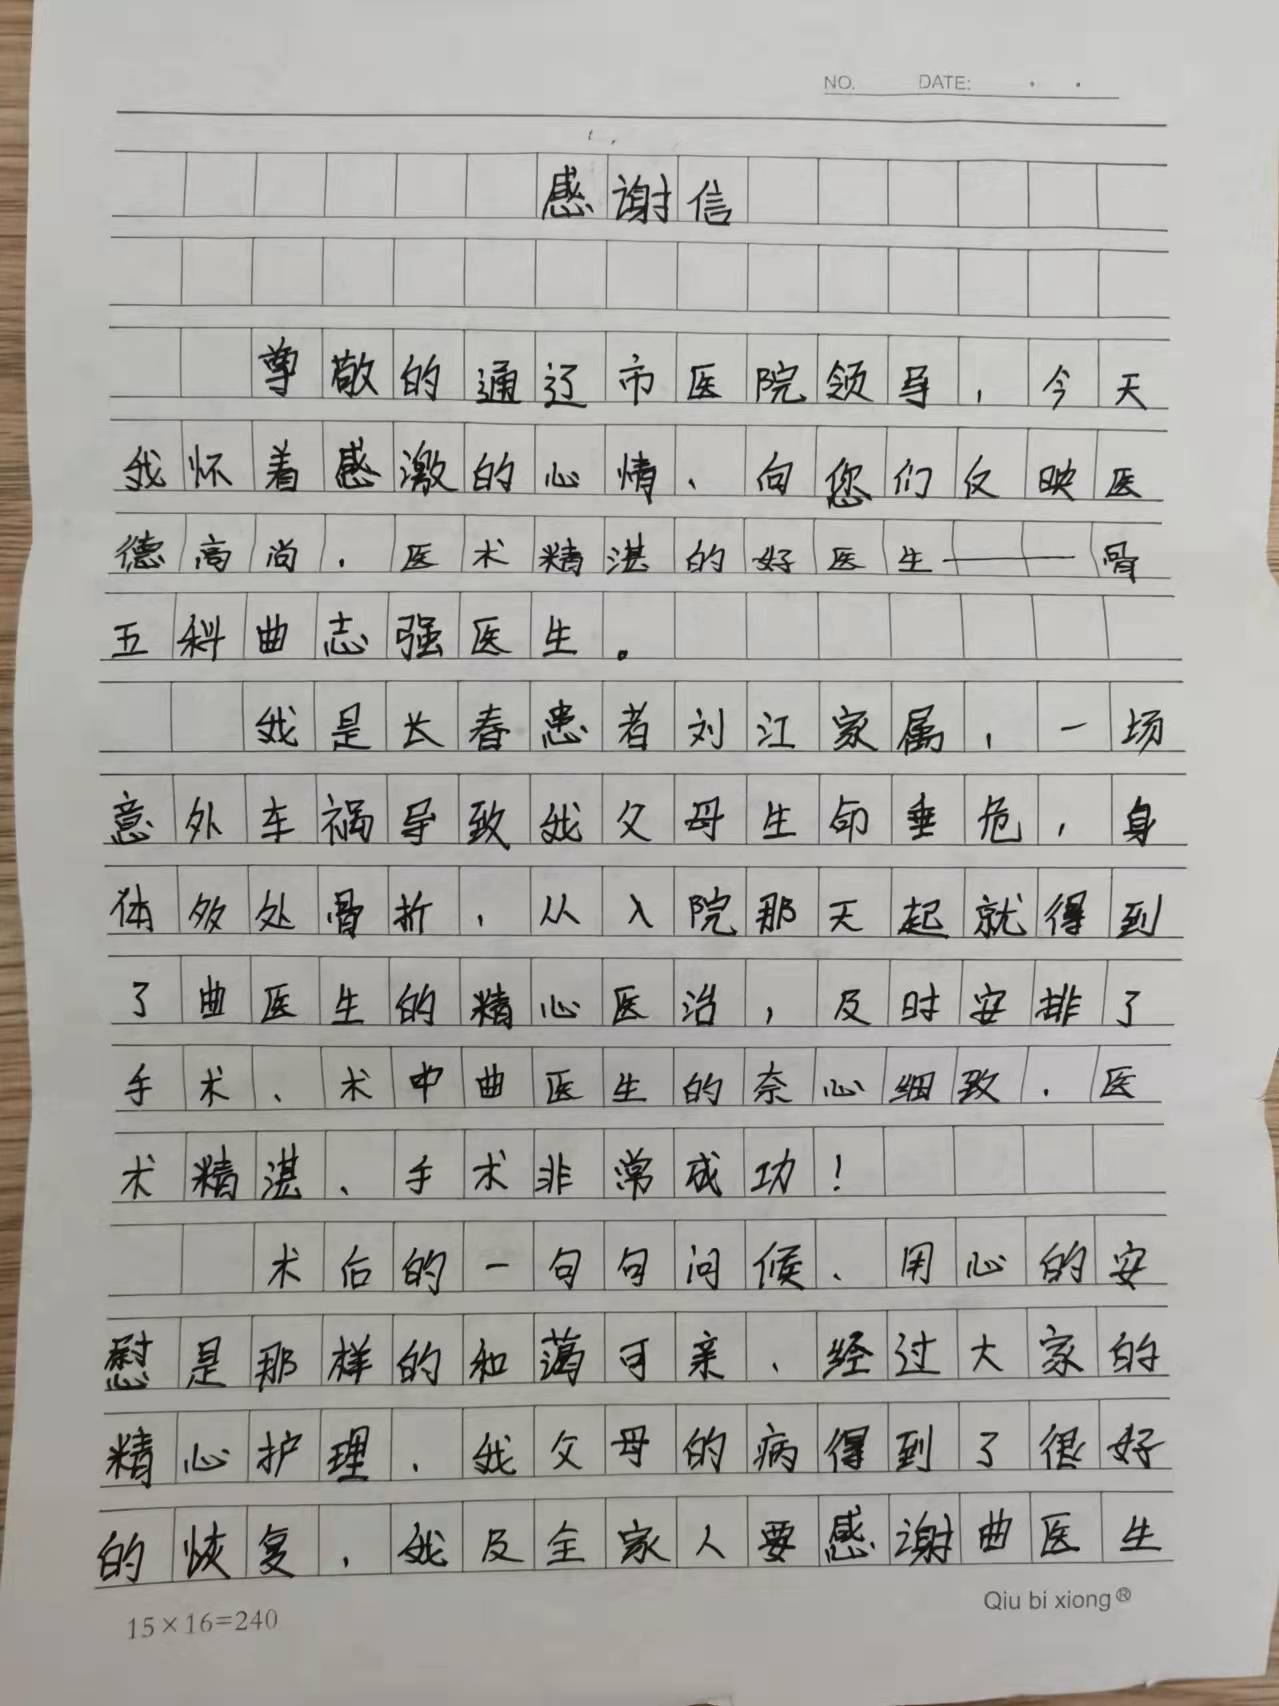 NO. DATE: . .
感谢信
尊敬的通辽市医院领导，今天
我怀着感激的心情、向您们仅映医
德高尚．医术精湛的好医生——骨
五科曲志强医生。
我是长春患者刘江家属，一场
意外车祸导致我父母生命垂危，身
体多处骨折，从入院那天起就得到
了曲医生的精心医治，及时安排了
手术、术中曲医生的奈心细致．医
术精湛、手术非常成功！
术后的一句句问候、用心的安
慰是那样的和蔼可亲、经过大家的
精心护理．我父母的病得到了很好
的恢复，我及全家人要感谢曲医生
15×16=240
Qiu bi xiong®